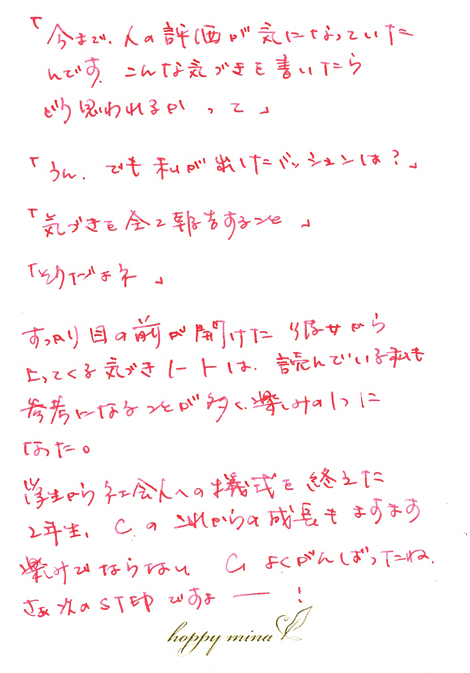 「今まで、人の評価が気になっていた
んです。こんな気づきを書いたら
どう思われるか って」
「うん、でも私が出したミッションは？」
「気づきを全て報告すること」
「そうだよネ」
すっかり目の前が開けた 彼女から
上ってくる気づきノートは、読んでいる私も
参考になることが多く、楽しみの1つに
なった。
学生から社会人への儀式を終えた
2年生、Cのこれからの成長もますます
楽しみでならない C よくがんばったね。
さぁ次のSTEPですよ ― !
happy mina